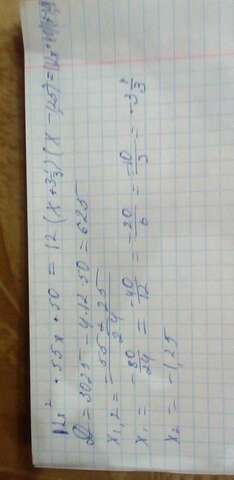 12x² + 55x + 50 = 12(x + 3⅓)(x - 1,25) =
D = 3025 - 4·12·50 = 625
x₁,₂ = (-55 ± 25)/24
x₁ = -80/24 = -40/12 = -20/6 = -10/3 = -3⅓
x₂ = -1,25